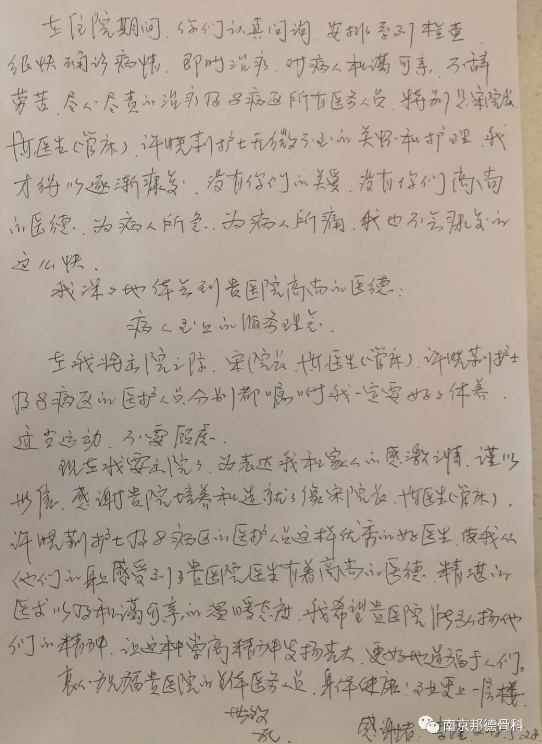 在住院期间,你们认真问询,安排系列检查,
很快确诊病情,即时治疗,对病人和蔼可亲,不辞
劳苦,尽心尽责的治疗及8病区所有医务人员,特别是宋院长
医生(管床),许晓莉护士无微不至的关怀和护理,我
才得以逐渐康复,没有你们的关爱,没有你们高尚
的医德,为病人所急,为病人所痛,我也不会康复的
这么快。
我深深地体会到贵医院高尚的医德:
病人至上的服务理念.
在我将出院之际,宋院长,医生(管床),许晓莉护士
及8病区的医护人员分别都嘱咐我一定要好好休养,
适当运动,不要顾虑.
现在我要出院了,为表达我和家人的感激之情,谨以
此信,感谢贵院培养和造就了像宋院长,医生(管床),
许晓莉护士及8病区的医护人员这样优秀的好医生,使我从
他们的身上感受到了贵医院医生有着高尚的医德,精湛的
医术以及和蔼可亲的温暖态度,我希望贵医院弘扬他
们的精神,让这种崇高精神发扬光大,更好地造福于人们。
衷心祝福贵医院的全体医务人员,身体健康!更上一层楼.
此致
礼
感谢者:
南京邦德骨科